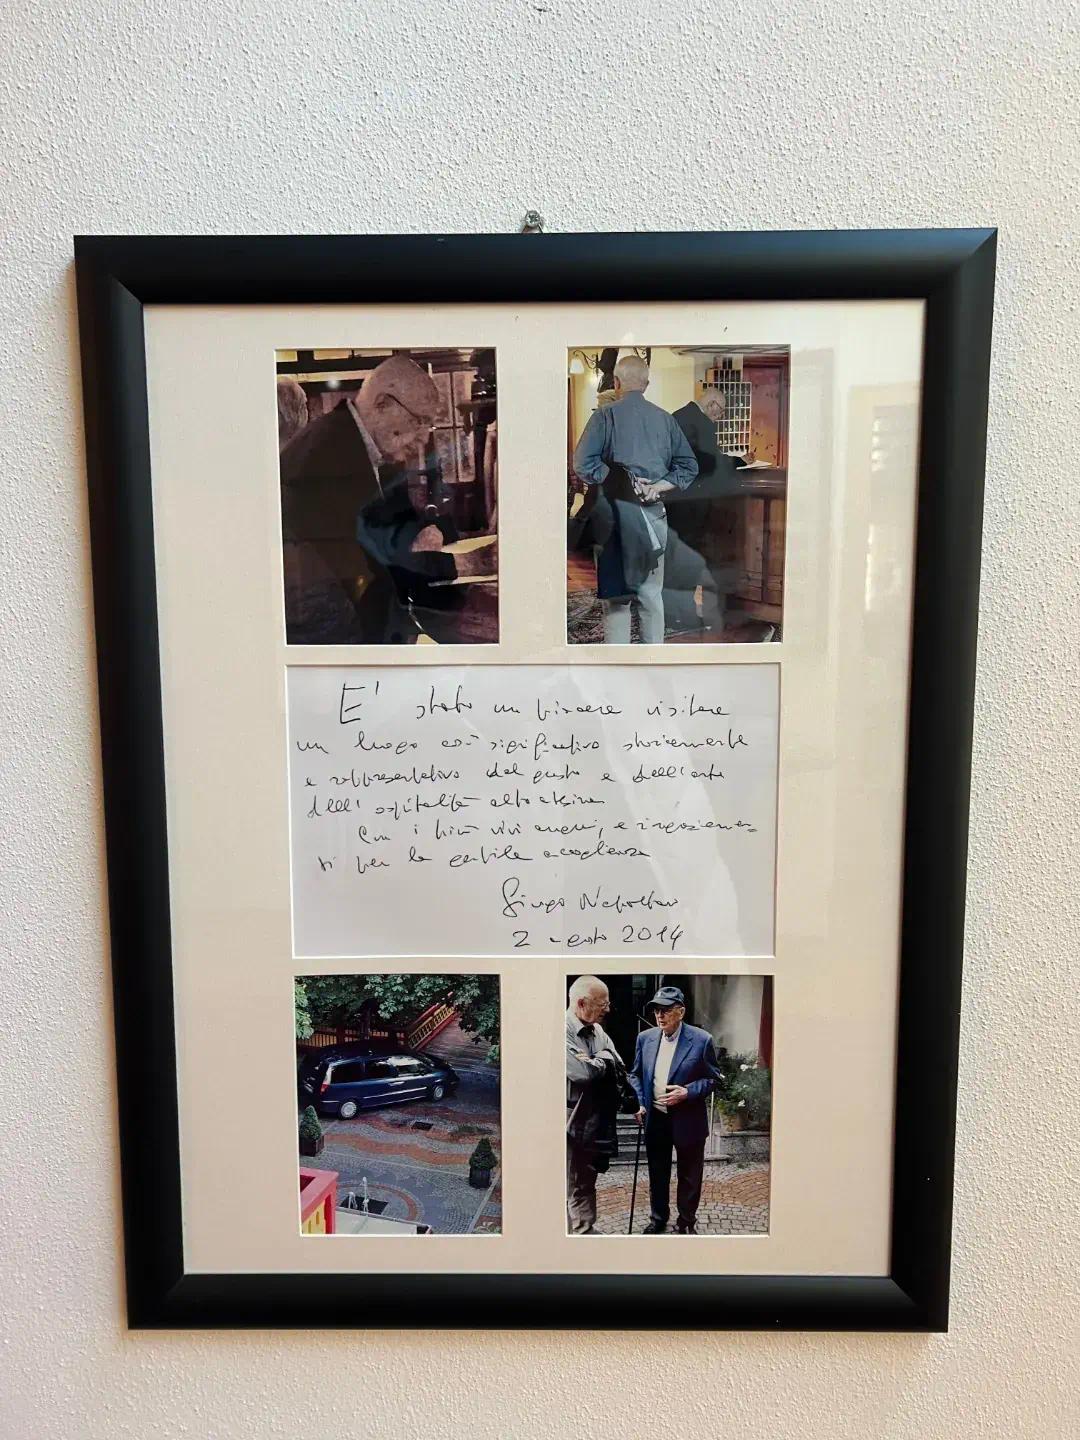 E' stato un piacere visitare
un luogo così significativo storicamente
e rappresentativo del gusto e dell'arte
dell'ospitalità altoatesina
Con i più vivi auguri, e ringraziamen=
ti per la gentile accoglienza
Giorgio Napolitano
2 agosto 2014